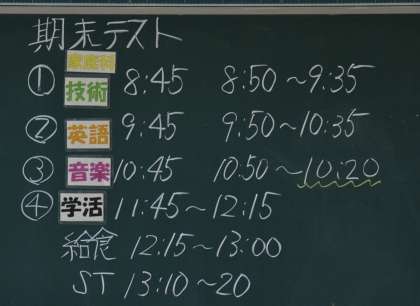 期末テスト
家庭科
① 技術 8:45 8:50～9:35
② 英語 9:45 9:50～10:35
③ 音楽 10:45 10:50～10:20
④ 学活 11:45～12:15
給食 12:15～13:00
ST 13:10～20